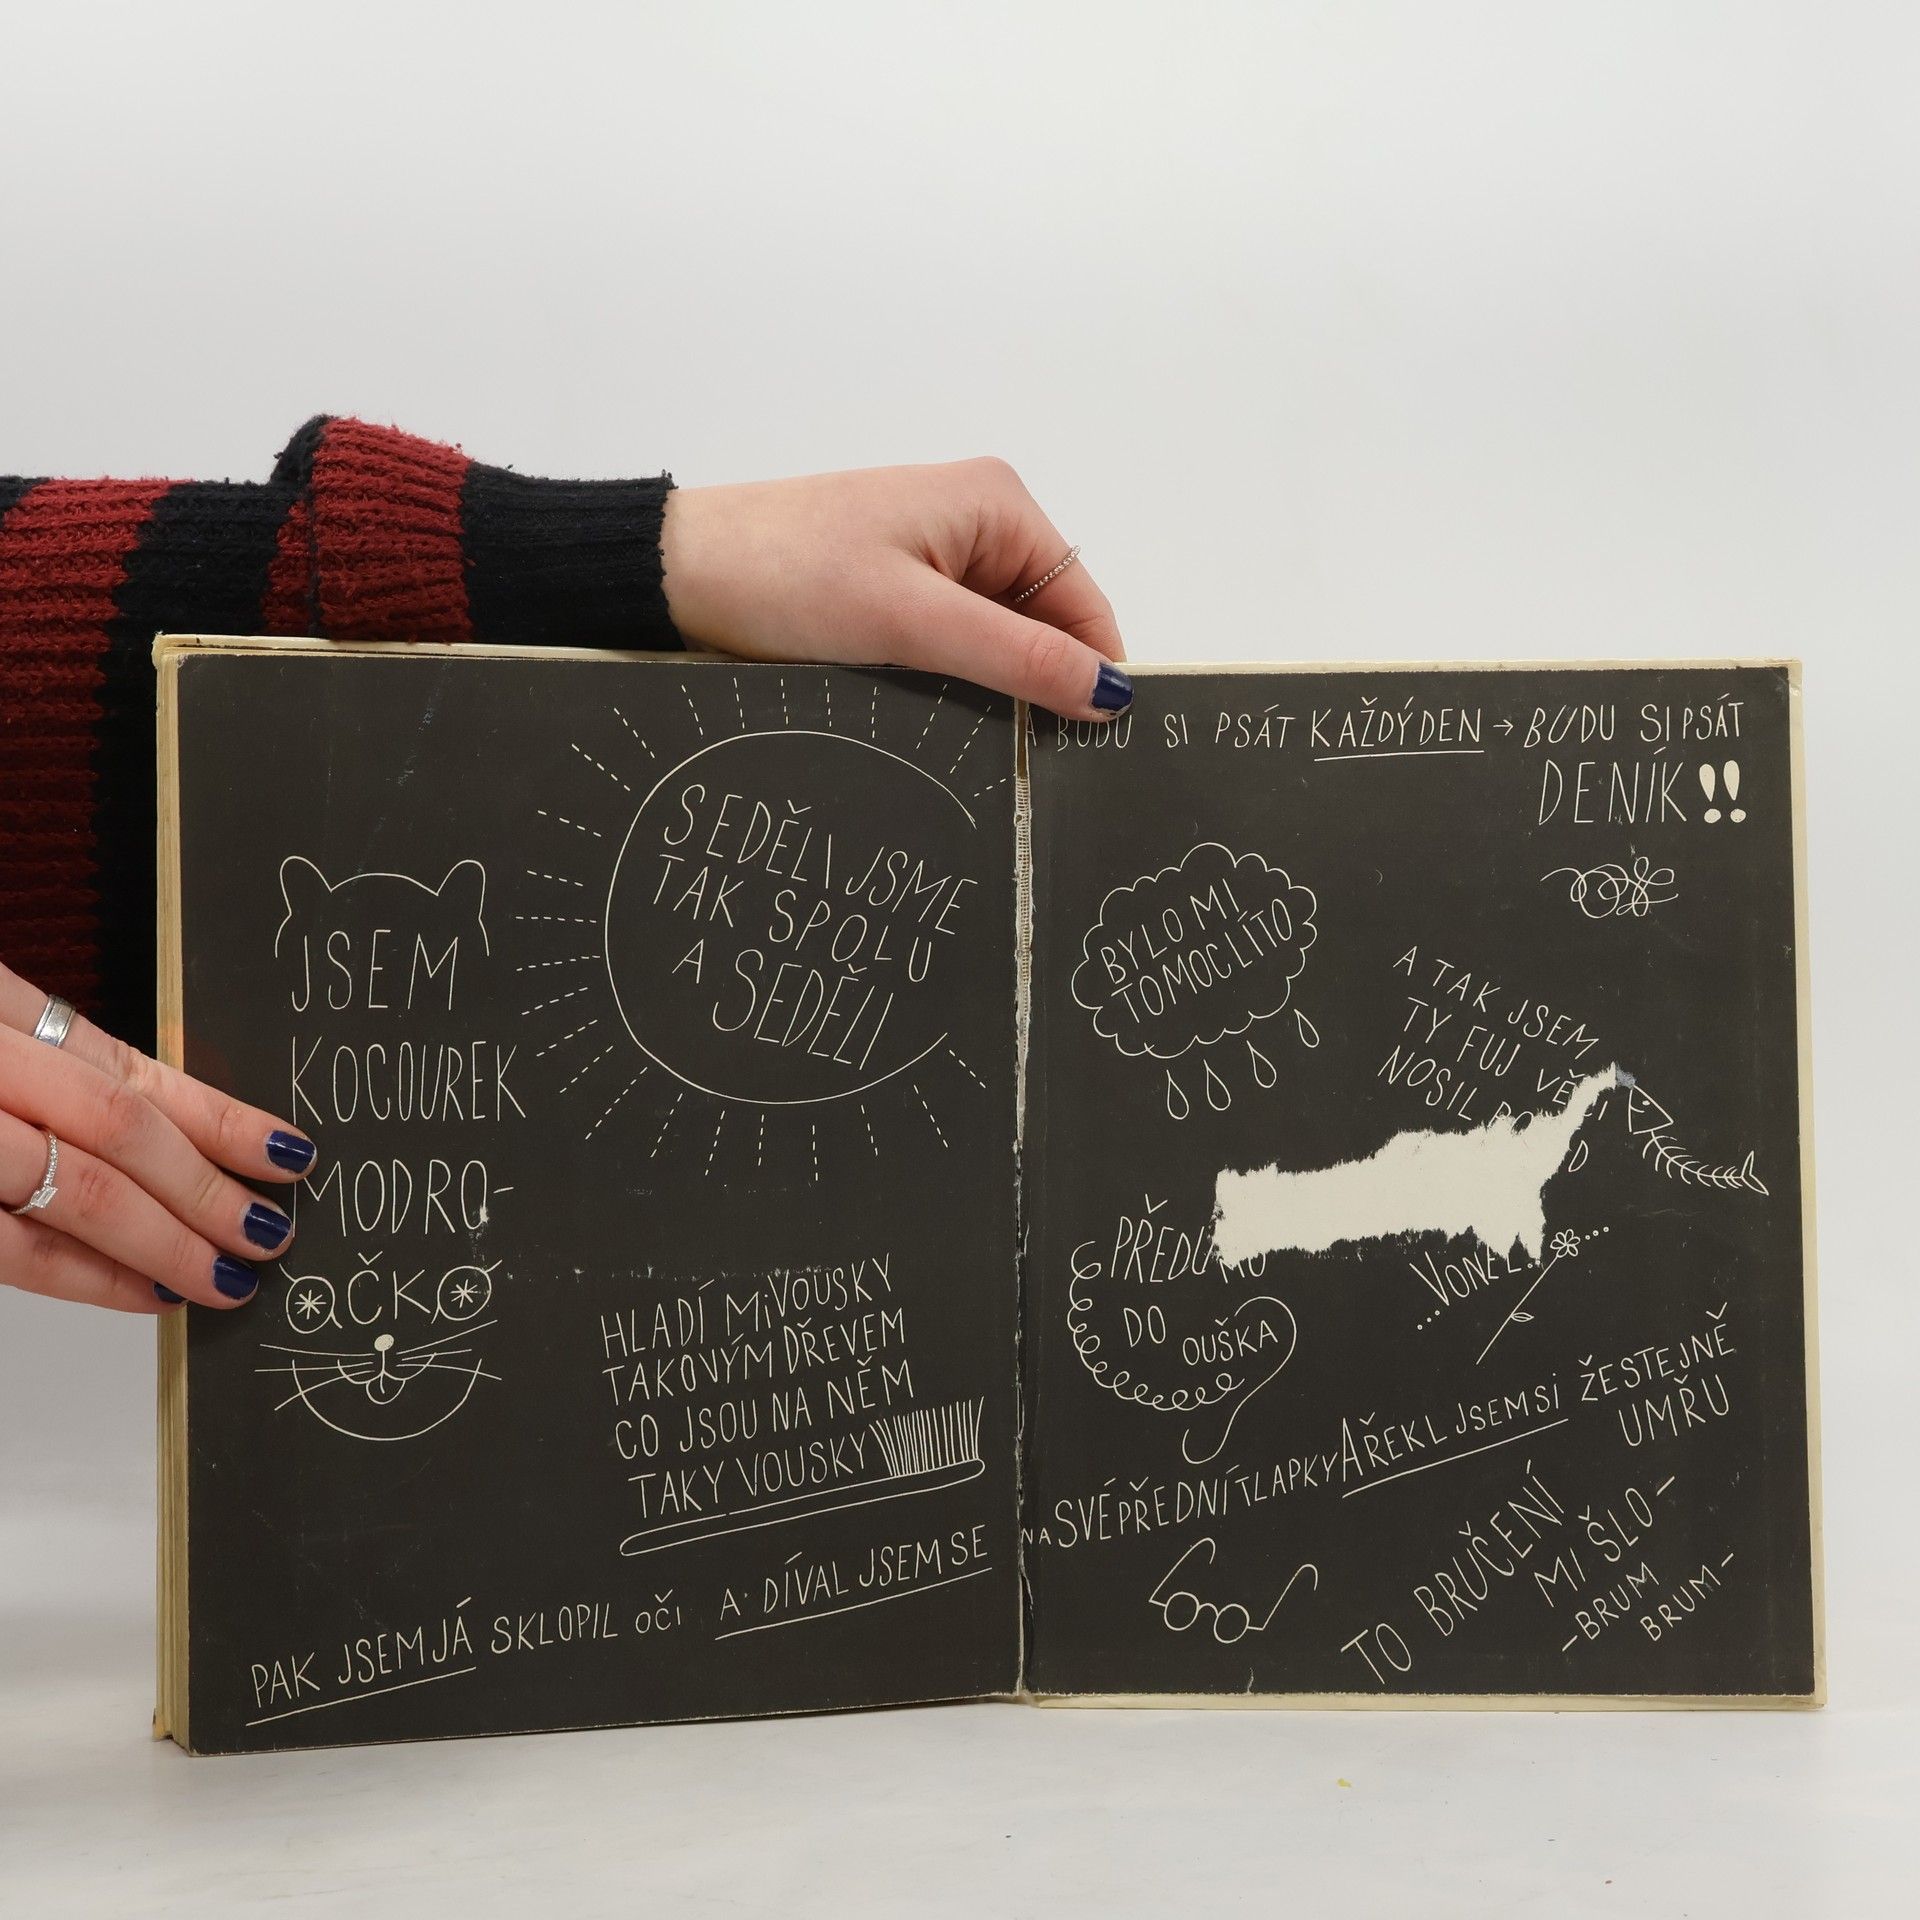 SEDĚLI JSME
TAK SPOLU
A SEDĚLI
JSEM
KOCOUREK
MODRO-
OČKO
HLADÍ MI VOUSKY
TAKOVÝM DŘEVEM
CO JSOU NA NĚM
TAKY VOUSKY
PAK JSEM JÁ SKLOPIL OČI A DÍVAL JSEM SE
A BUDU SI PSÁT KAŽDÝ DEN → BUDU SI PSÁT
DENÍK!!
BYLO MI
TOMOC LÍTO
A TAK JSEM
TY FUJ VĚCI
NOSIL
PŘEDU MU
DO
OUŠKA
...VONĚL...
NA SVÉ PŘEDNÍ TLAPKY A ŘEKL JSEM SI ŽE STEJNĚ
UMŘU
TO BRUČENÍ
MI ŠLO-
-BRUM
BRUM-